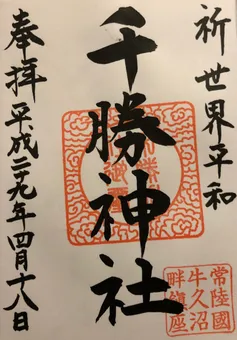 祈世界平和
千勝神社
奉拝 平成二十九年四月十八日
常陸國
牛久沼
畔鎮座